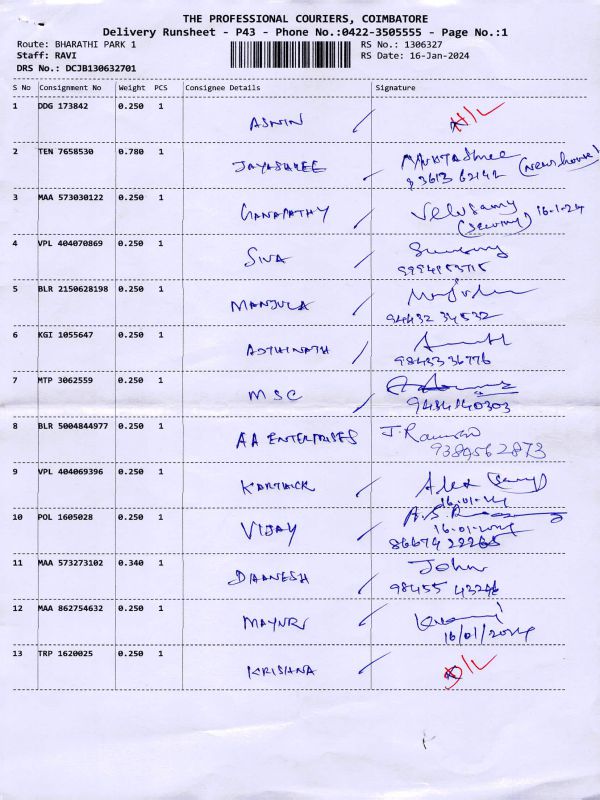 THE PROFESSIONAL COURIERS, COIMBATORE
Delivery Runsheet - P43 - Phone No.:0422-3505555 - Page No.:1
Route: BHARATHI PARK 1 RS No.: 1306327
Staff: RAVI RS Date: 16-Jan-2024
DRS No.: DCJB130632701
S No Consignment No Weight PCS Consignee Details Signature
1 DDG 173842 0.250 1
ASWIN
2 TEN 7658530 0.780 1
JAYASHREE (New house)
3 MAA 573030122 0.250 1
GANAPATHY Velusamy 16-1-24
4 VPL 404070869 0.250 1
SIVA
5 BLR 2150628198 0.250 1
MANJULA
94432 34532
6 KGI 1055647 0.250 1
ADTHINATH
98433 36776
7 MTP 3062559 0.250 1
MSC
8 BLR 5004844977 0.250 1
AA ENTERPRISES
9389562873
9 VPL 404069396 0.250 1
KARTHICK Alex
16-01-24
10 POL 1605028 0.250 1
VIJAY 16-01-2024
86674 22265
11 MAA 573273102 0.340 1 John
DAANESH 98455 43246
12 MAA 862754632 0.250 1
MAYURI
16/01/2024
13 TRP 1620025 0.250 1
KRISHNA D/L